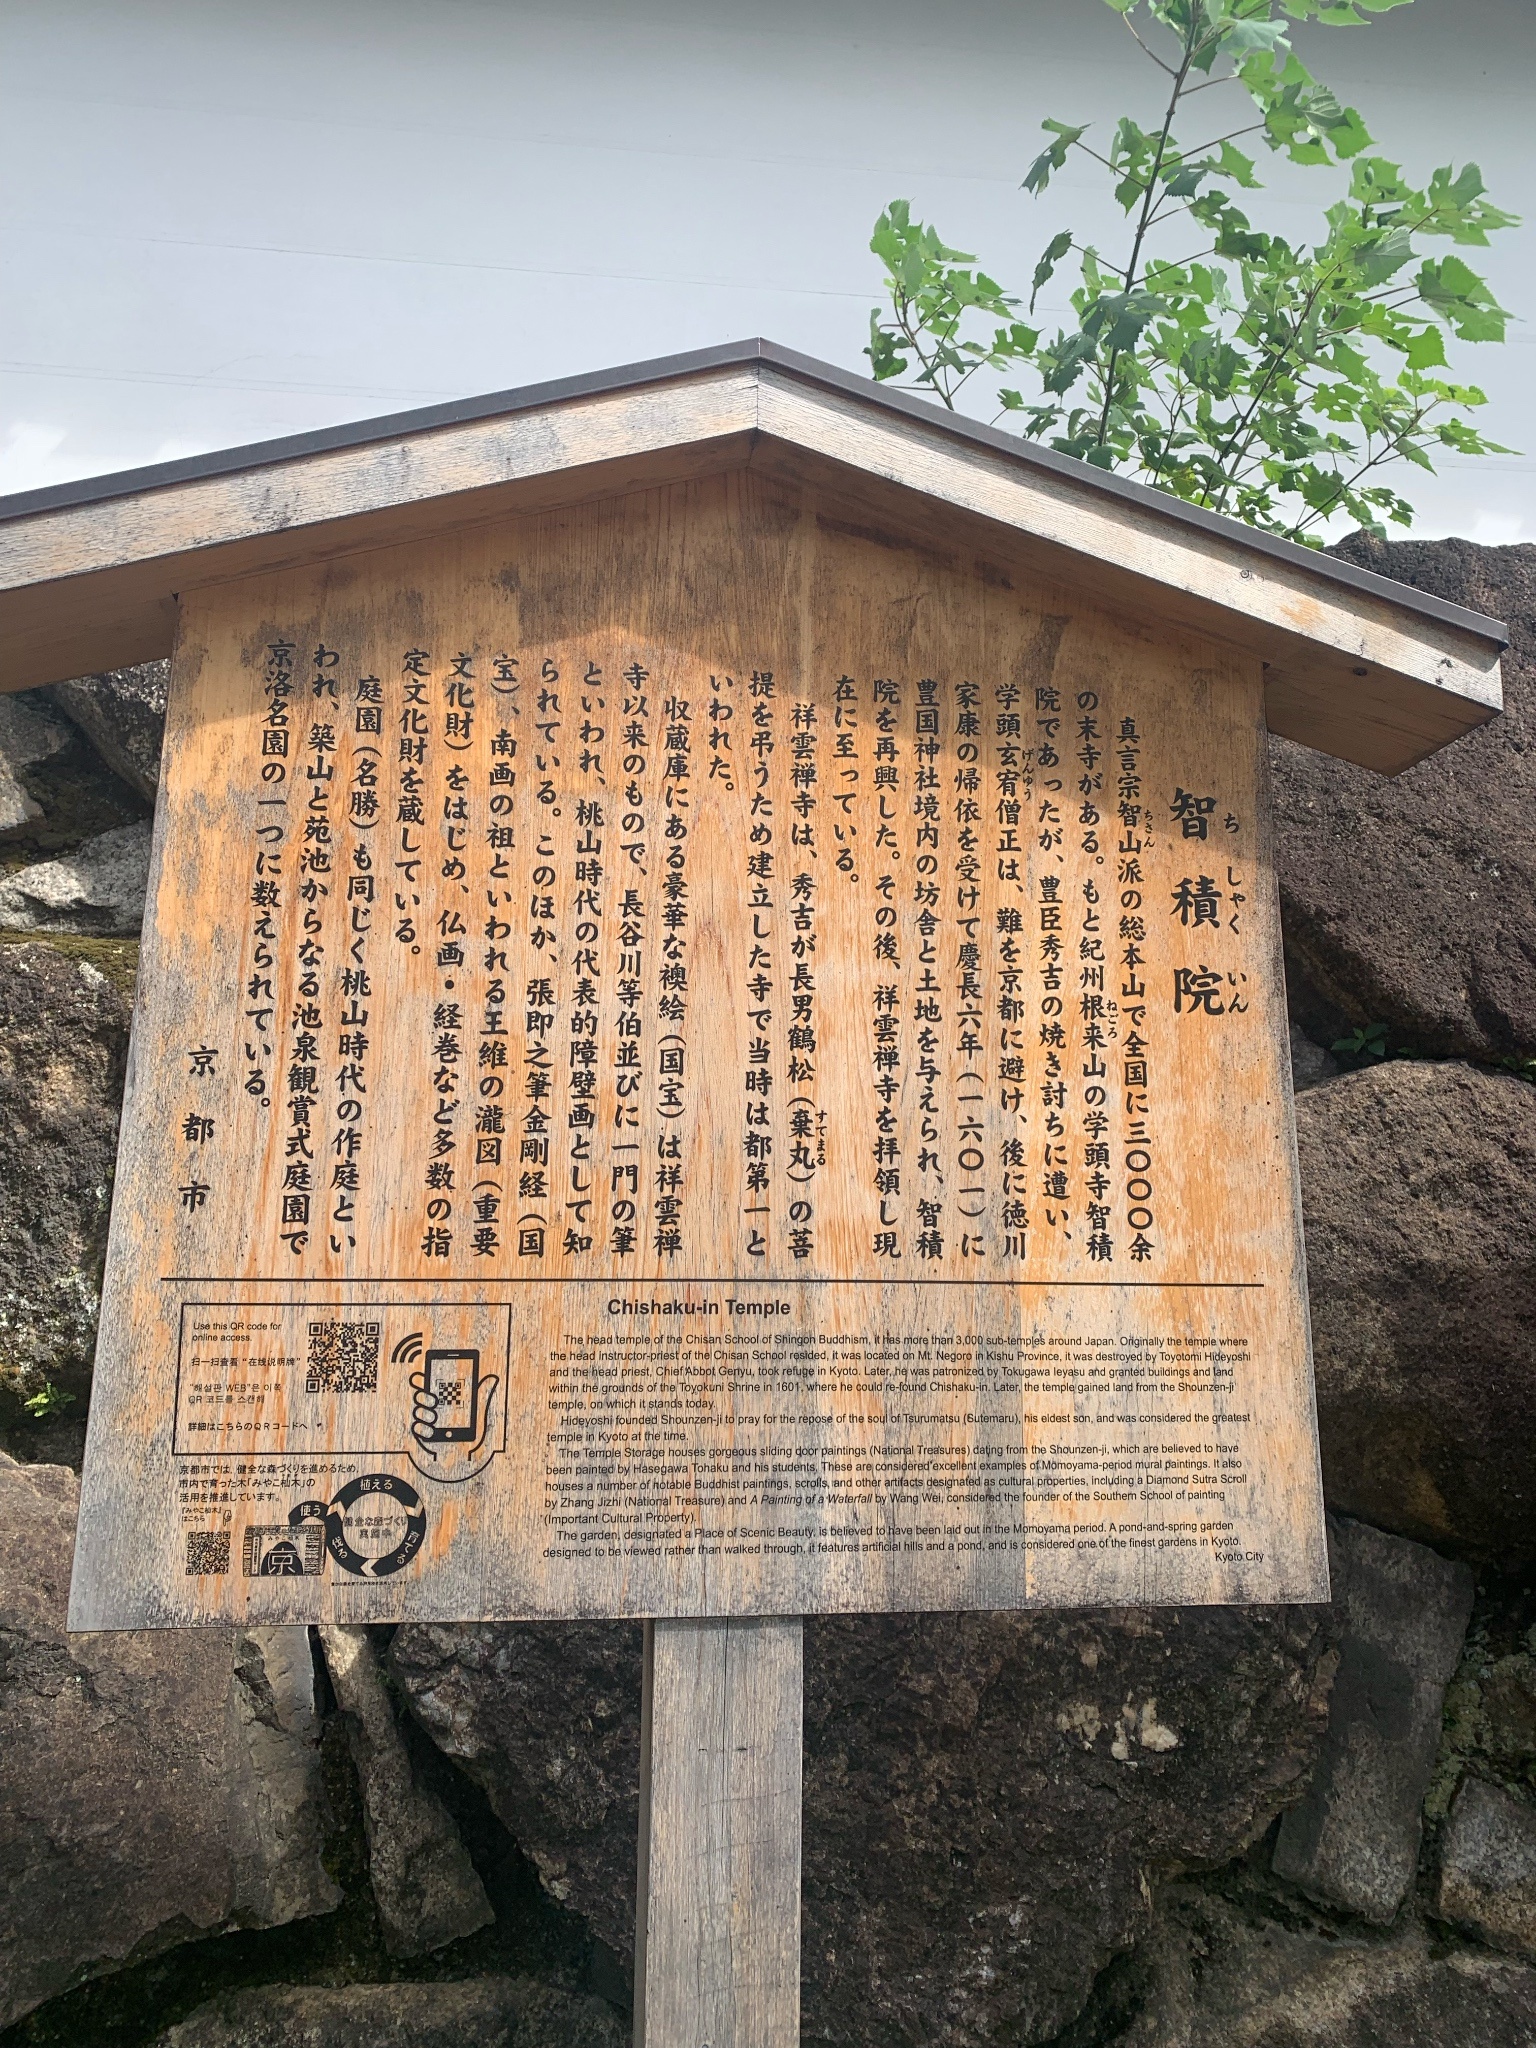 智積院
ちしゃくいん
真言宗智山派の総本山で全国に三〇〇〇余
ちさん
の末寺がある。もと紀州根来山の学頭寺智積
ねごろ
院であったが、豊臣秀吉の焼き討ちに遭い、
学頭玄宥僧正は、難を京都に避け、後に徳川
げんゆう
家康の帰依を受けて慶長六年（一六〇一）に
豊国神社境内の坊舎と土地を与えられ、智積
院を再興した。その後、祥雲禅寺を拝領し現
在に至っている。
祥雲禅寺は、秀吉が長男鶴松（棄丸）の菩
すてまる
提を弔うため建立した寺で当時は都第一と
いわれた。
収蔵庫にある豪華な襖絵（国宝）は祥雲禅
寺以来のもので、長谷川等伯並びに一門の筆
といわれ、桃山時代の代表的障壁画として知
られている。このほか、張即之筆金剛経（国
宝）、南画の祖といわれる王維の瀧図（重要
文化財）をはじめ、仏画・経巻など多数の指
定文化財を蔵している。
庭園（名勝）も同じく桃山時代の作庭とい
われ、築山と苑池からなる池泉観賞式庭園で
京洛名園の一つに数えられている。
京都市
Chishaku-in Temple
The head temple of the Chisan School of Shingon Buddhism, it has more than 3,000 sub-temples around Japan. Originally the temple where
the head instructor-priest of the Chisan School resided, it was located on Mt. Negoro in Kishu Province, it was destroyed by Toyotomi Hideyoshi
and the head priest, Chief Abbot Genyu, took refuge in Kyoto. Later, he was patronized by Tokugawa Ieyasu and granted buildings and land
within the grounds of the Toyokuni Shrine in 1601, where he could re-found Chishaku-in. Later, the temple gained land from the Shounzen-ji
temple, on which it stands today.
Hideyoshi founded Shounzen-ji to pray for the repose of the soul of Tsurumatsu (Sutemaru), his eldest son, and was considered the greatest
temple in Kyoto at the time.
The Temple Storage houses gorgeous sliding door paintings (National Treasures) dating from the Shounzen-ji, which are believed to have
been painted by Hasegawa Tohaku and his students. These are considered excellent examples of Momoyama-period mural paintings. It also
houses a number of notable Buddhist paintings, scrolls, and other artifacts designated as cultural properties, including a Diamond Sutra Scroll
by Zhang Jizhi (National Treasure) and A Painting of a Waterfall by Wang Wei, considered the founder of the Southern School of painting
(Important Cultural Property).
The garden, designated a Place of Scenic Beauty, is believed to have been laid out in the Momoyama period. A pond-and-spring garden
designed to be viewed rather than walked through, it features artificial hills and a pond, and is considered one of the finest gardens in Kyoto.
Kyoto City
Use this QR code for
online access.
扫一扫查看“在线说明牌”
"해설판 WEB"은 이쪽
QR 코드를 스캔해
詳細はこちらのQRコードへ
京都市では、健全な森づくりを進めるため、
市内で育った木「みやこ杣木」の
活用を推進しています。
「みやこ杣木」
はこちら
みやこ杣木
京
使う
植える
育てる
伐る
健全な森づくり
実施中